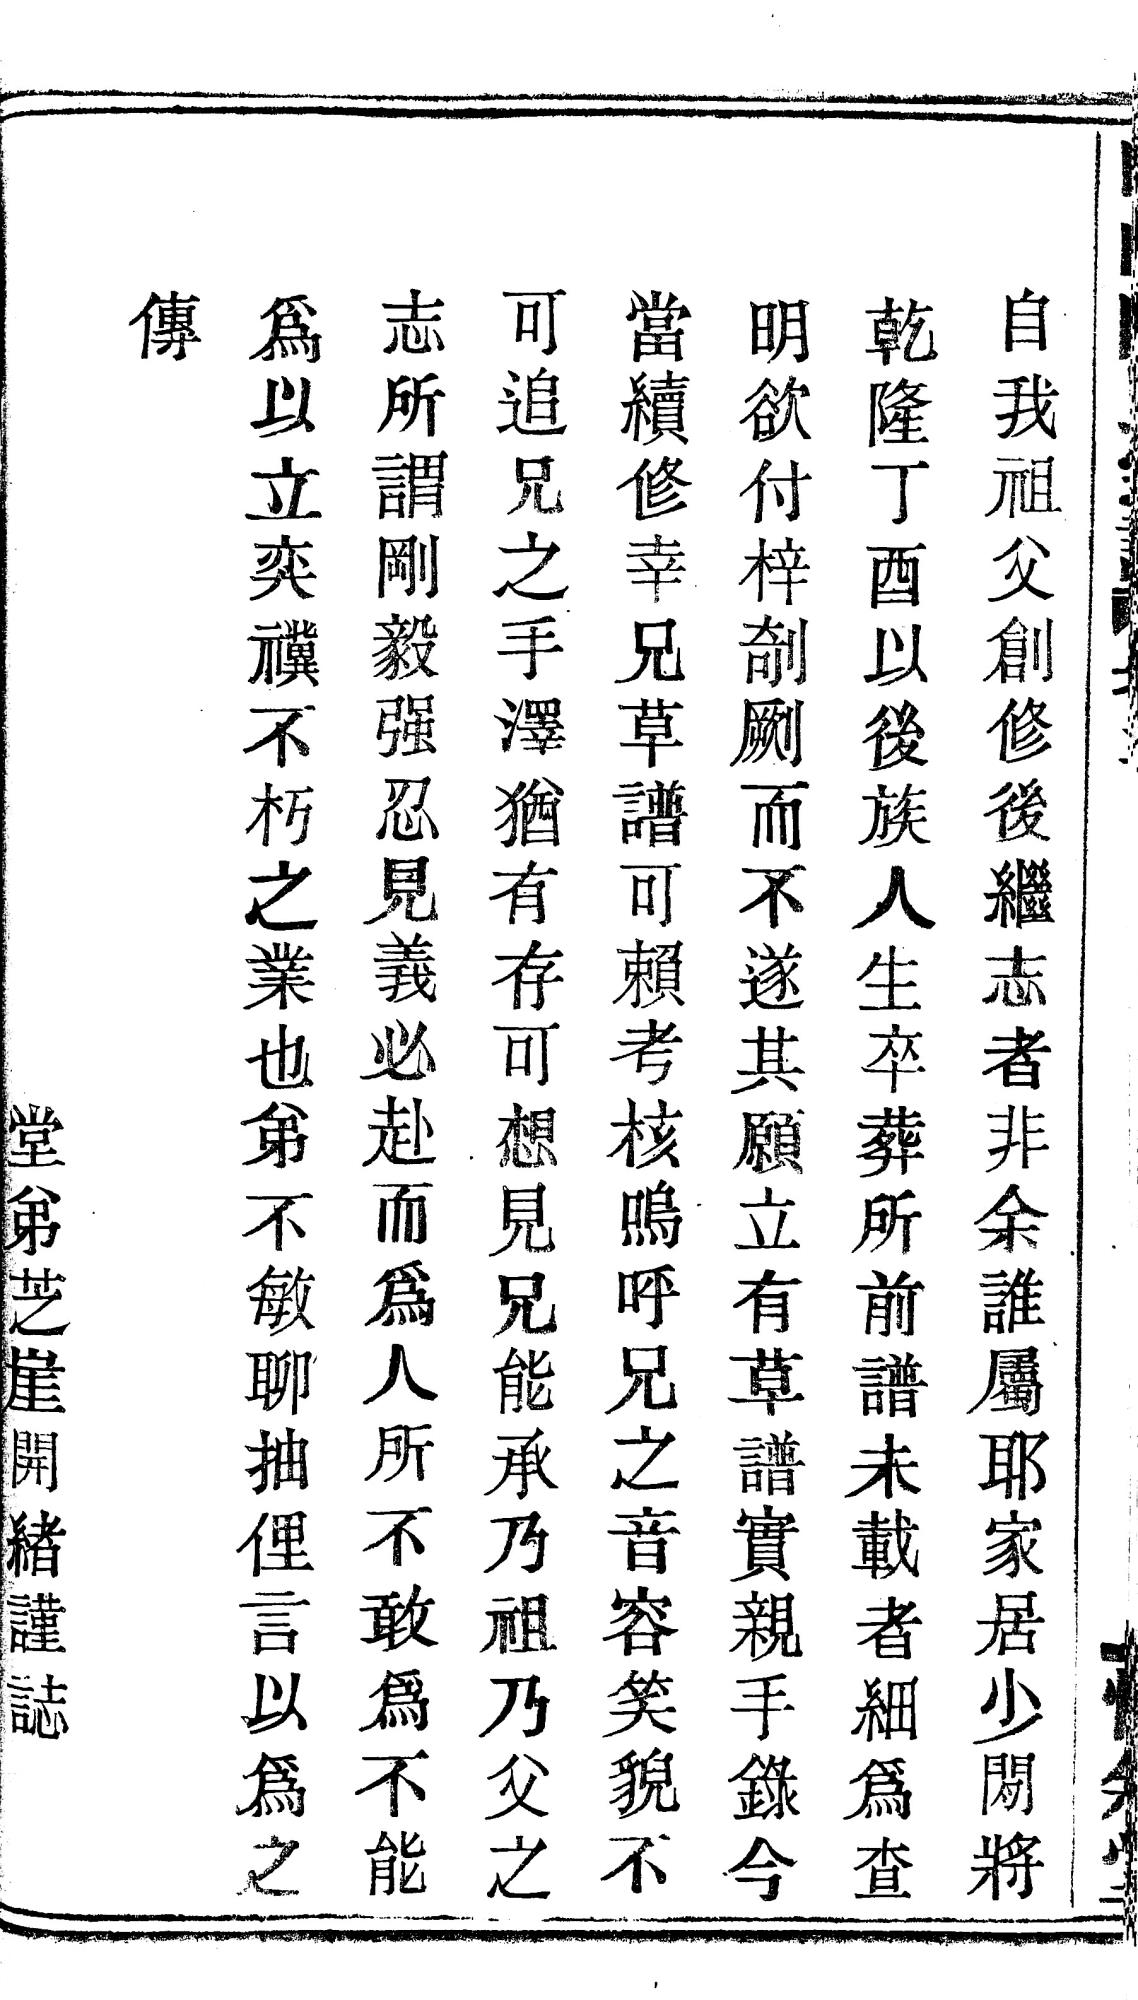 自我祖父創修後繼志者非余誰屬耶家居少閑將
乾隆丁酉以後族人生卒葬所前譜未載者細爲查
明欲付梓剞劂而不遂其願立有草譜實親手錄今
當續修幸兄草譜可賴考核嗚呼兄之音容笑貌不
可追兄之手澤猶有存可想見兄能承乃祖乃父之
志所謂剛毅强忍見義必赴而爲人所不敢爲不能
爲以立奕禩不朽之業也弟不敏聊抽俚言以爲之
傳
堂弟芝崖開緒謹誌